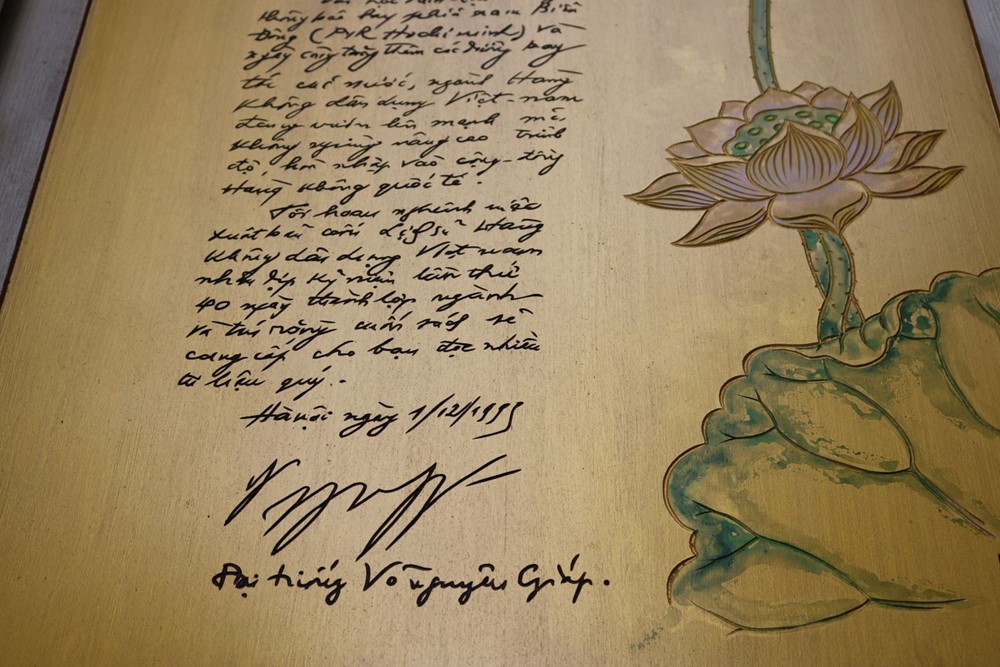 thông báo bay phía nam Biển
Đông (FIR Hochiminh) và
ngày càng tăng thêm các đường bay
tới các nước, ngành Hàng
Không dân dụng Việt-nam
đang vươn lên mạnh mẽ
Không ngừng nâng cao trình
độ, hòa nhập vào cộng-đồng
Hàng không quốc tế.
Tôi hoan nghênh việc
xuất bản cuốn Lịch sử Hàng
Không dân dụng Việt nam
nhân dịp kỷ niệm lần thứ
40 ngày thành lập ngành
và tin rằng cuốn sách sẽ
cung cấp cho bạn đọc nhiều
tư liệu quý..
Hà nội ngày 1/12/1995
Đại tướng Võ nguyên Giáp.